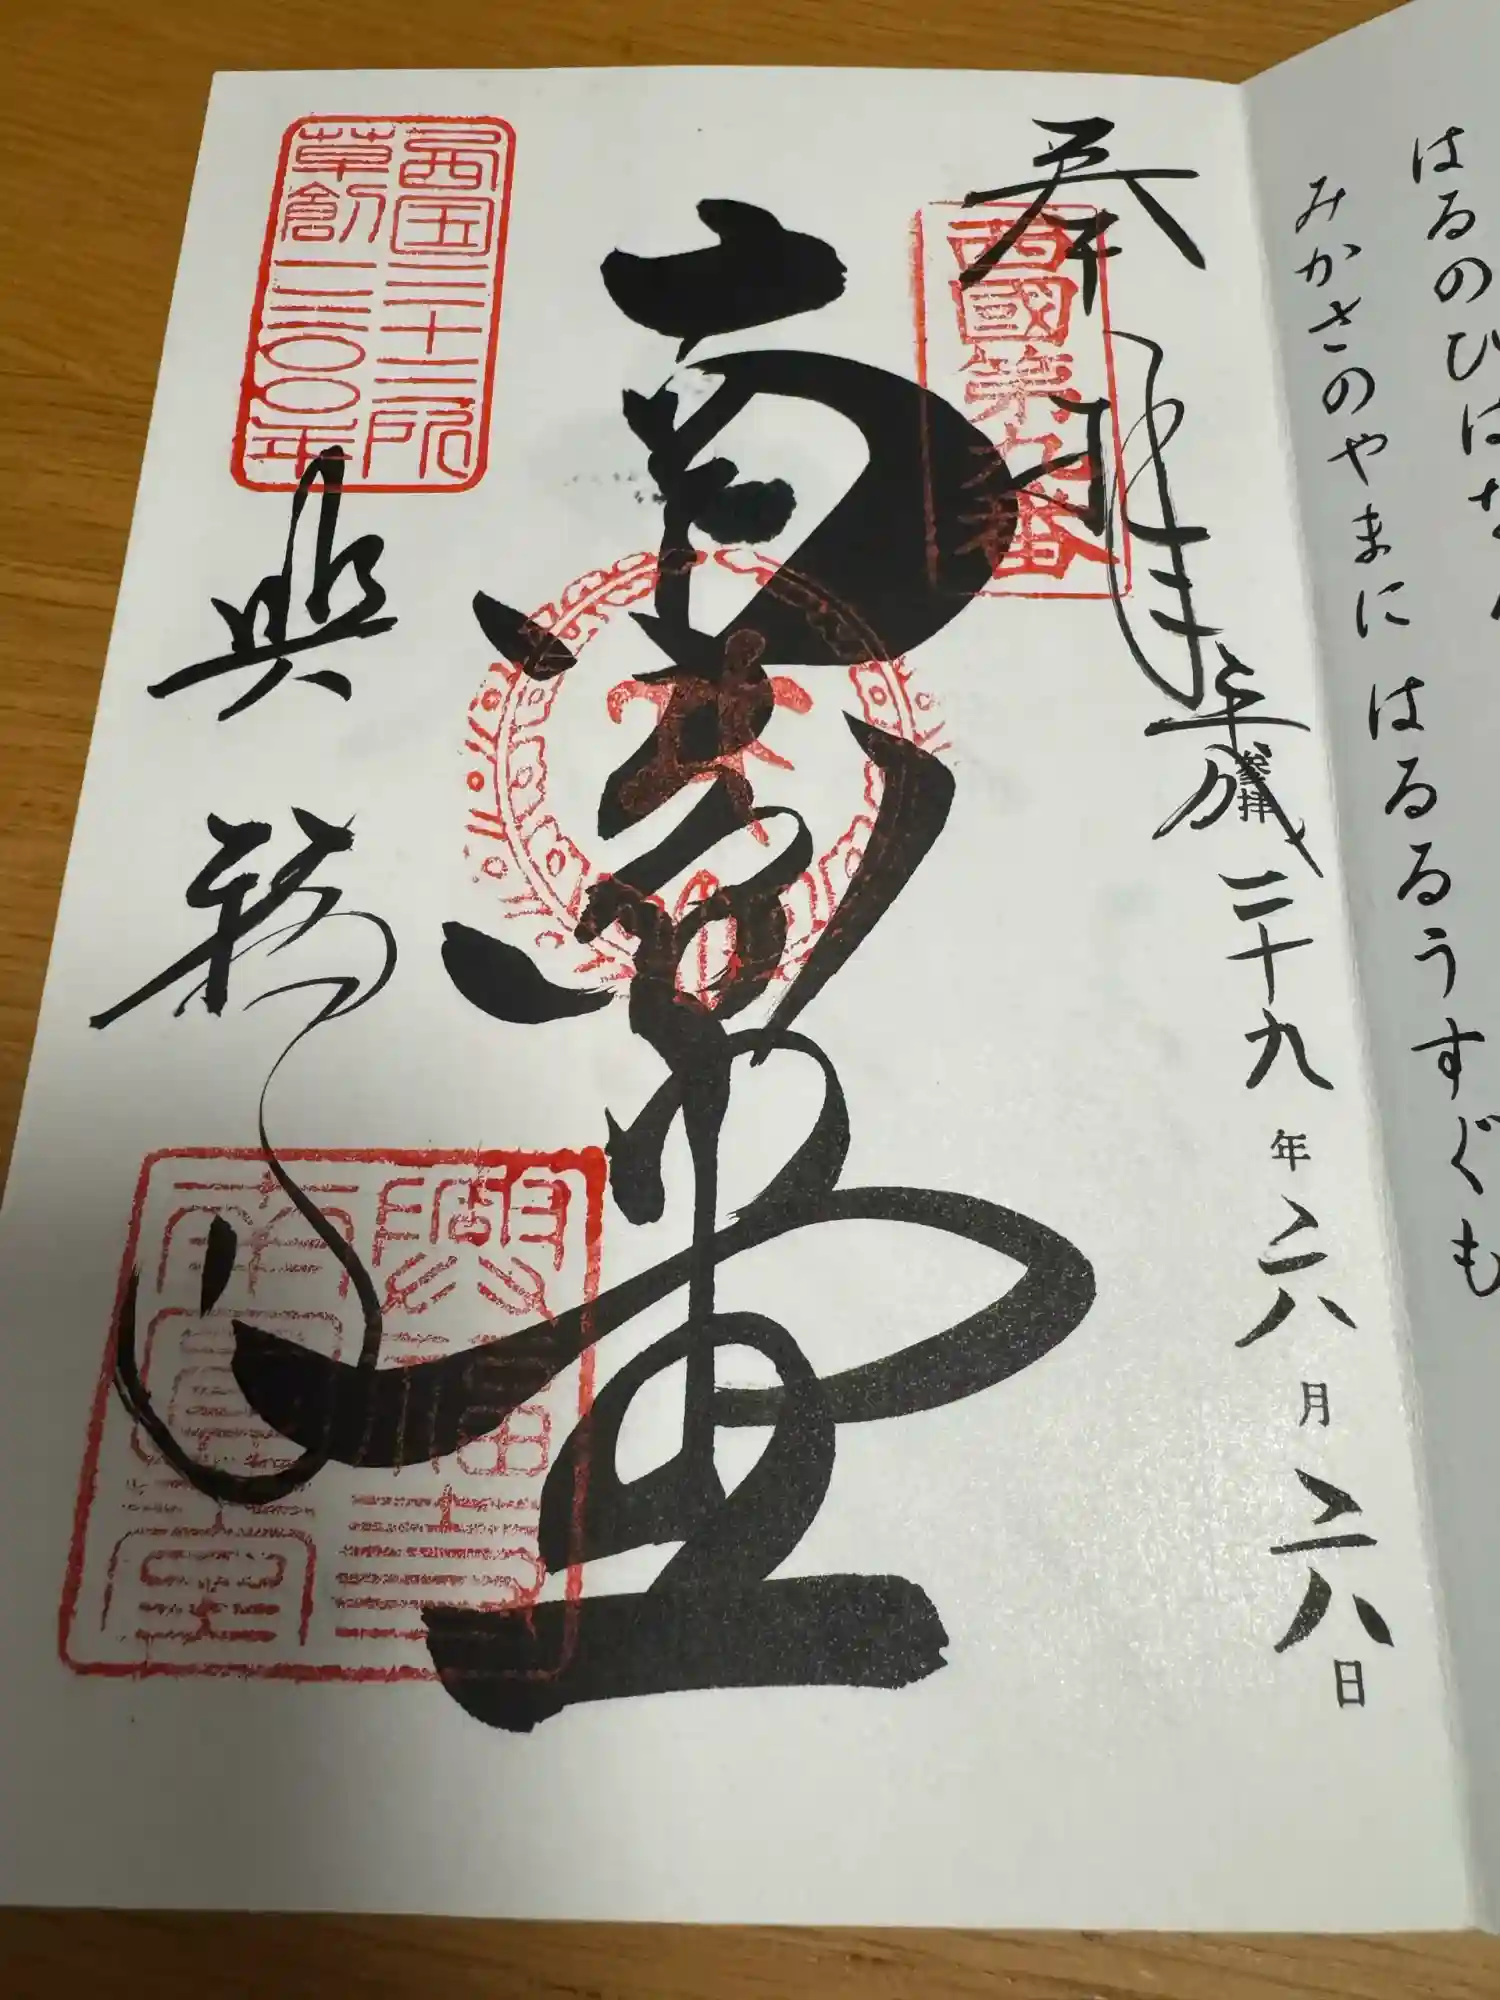 はるのひは
みかさのやまに はるるうすぐも
奉拝
西國第九番
参拝
平成二十九年六月二八日
南円堂
西国三十三所
草創一三〇〇年
興福寺
興福寺
南圓堂